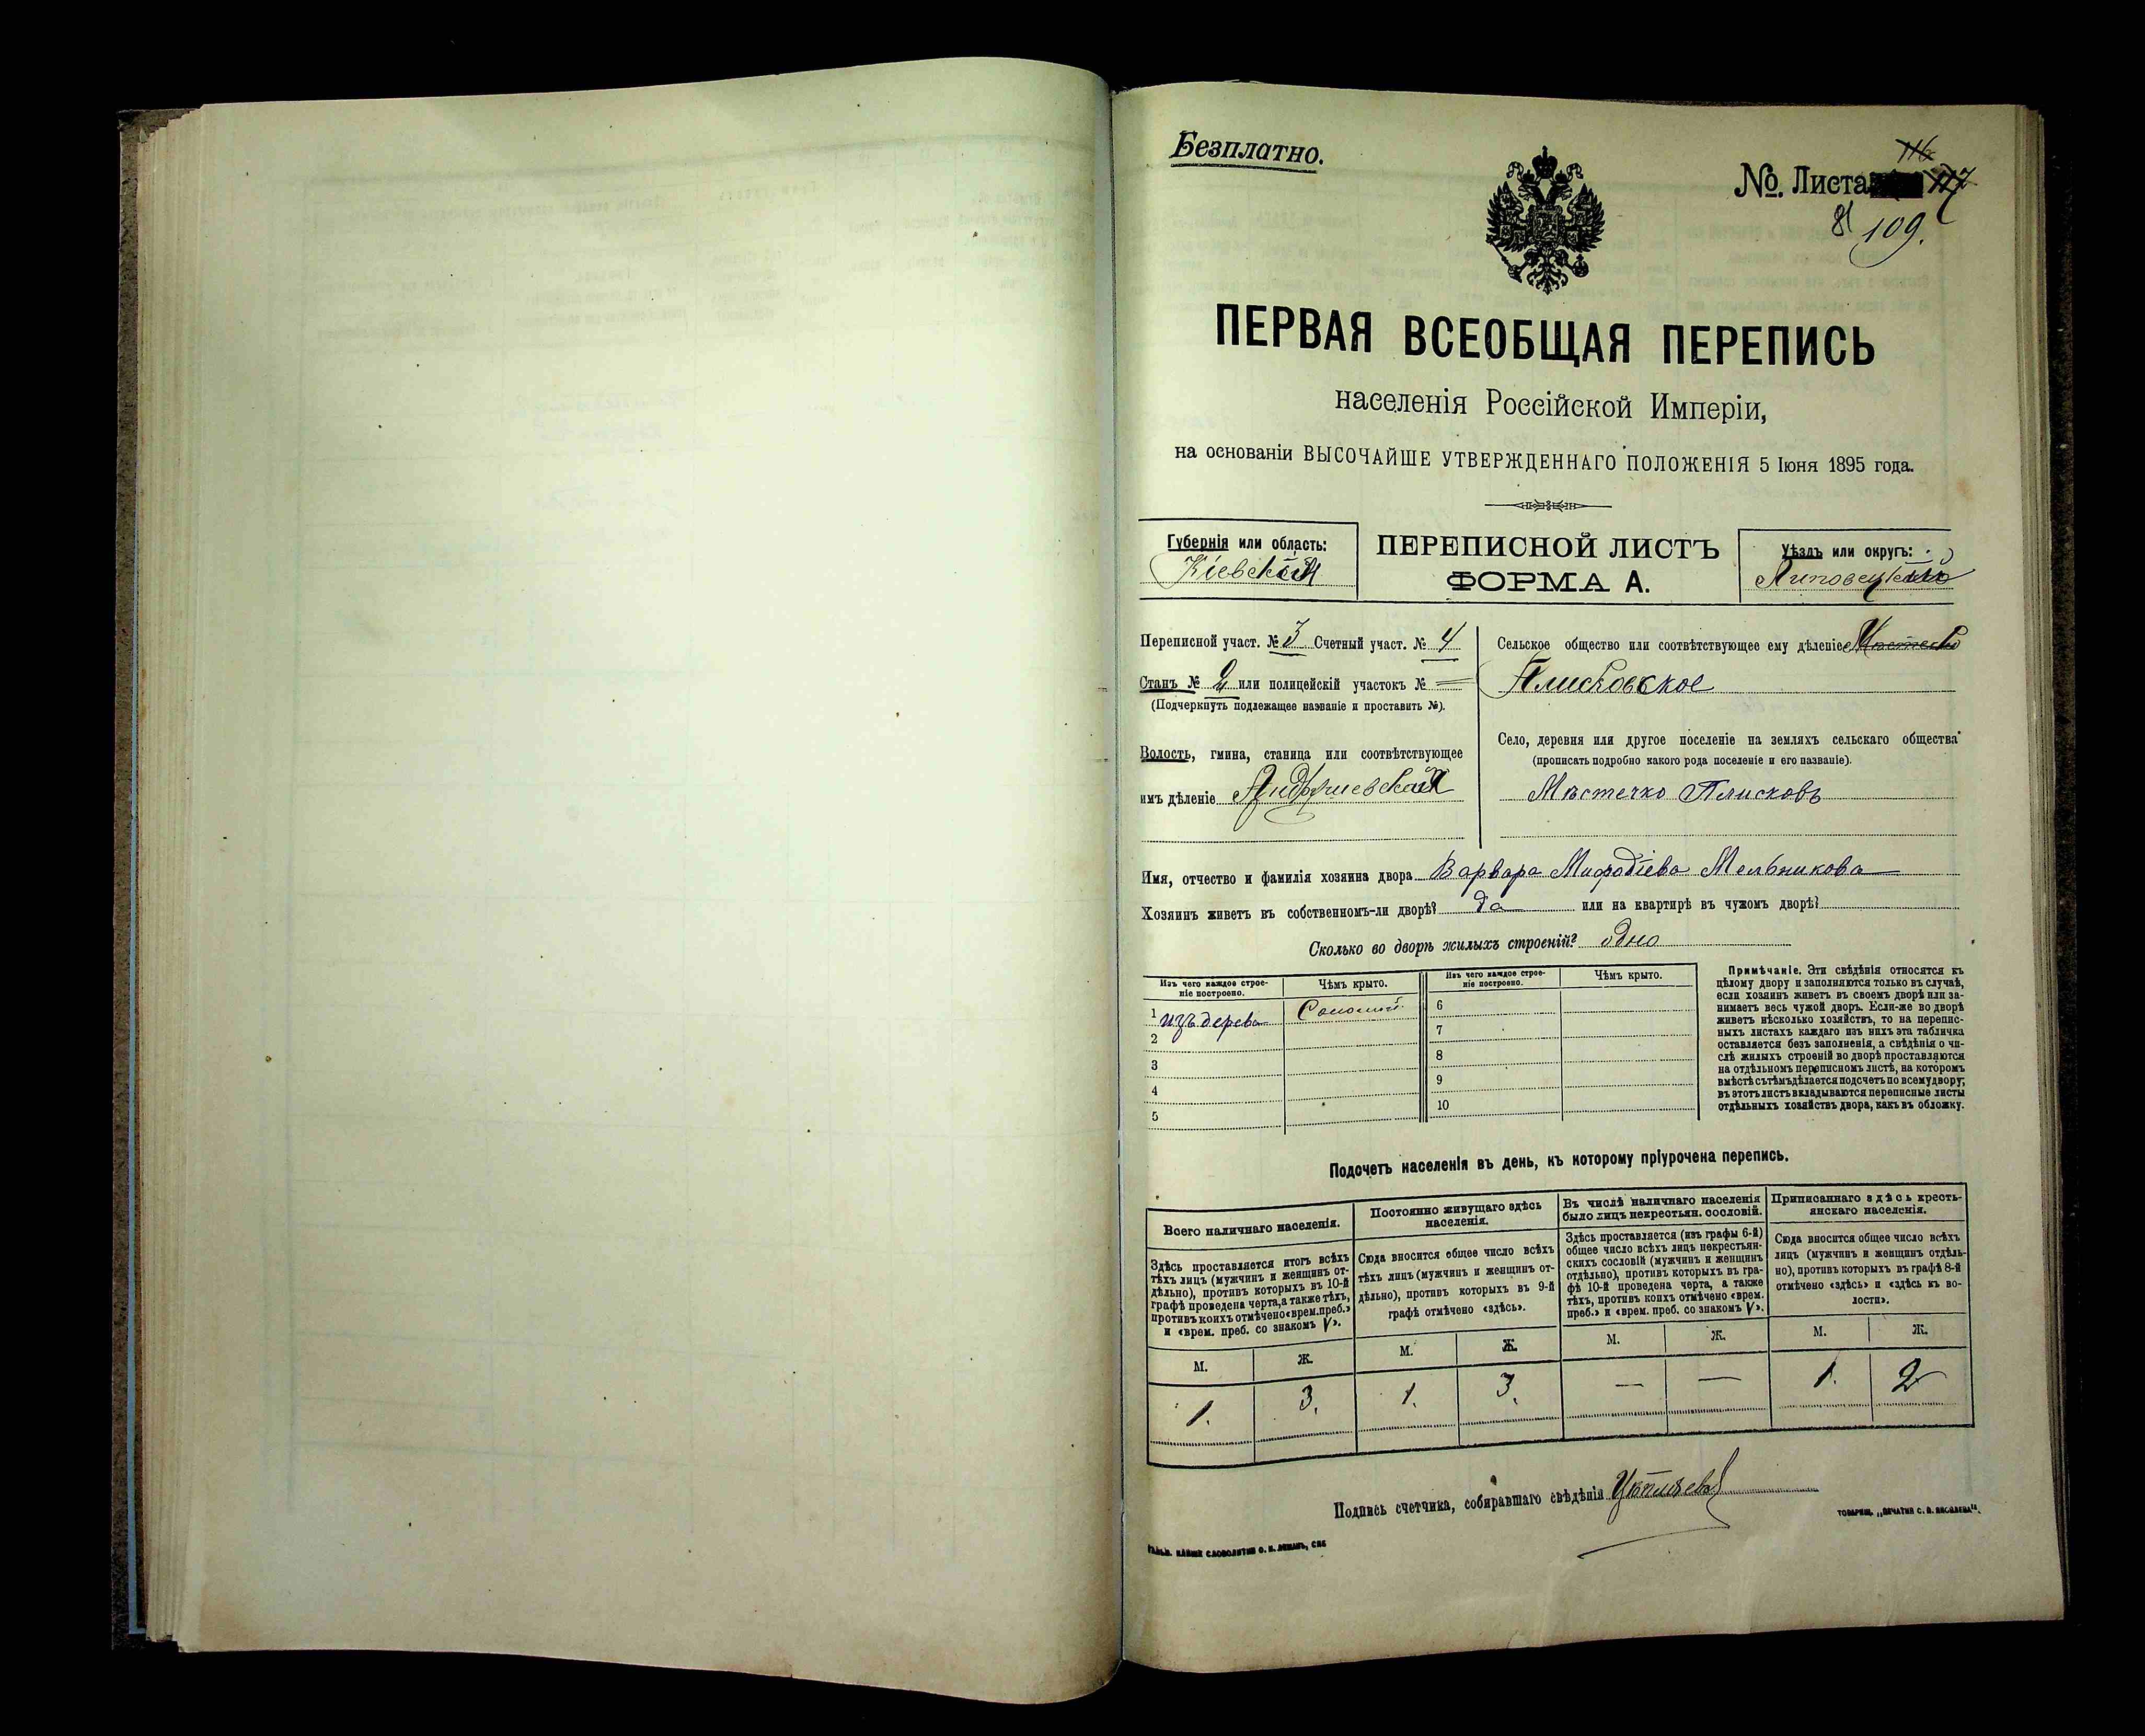 Безплатно.
116
№. Листа 117
81 109.
ПЕРВАЯ ВСЕОБЩАЯ ПЕРЕПИСЬ
населенія Россійской Имперіи,
на основаніи ВЫСОЧАЙШЕ УТВЕРЖДЕННАГО ПОЛОЖЕНІЯ 5 Іюня 1895 года.
Губернія или область:
Кіевская
ПЕРЕПИСНОЙ ЛИСТЪ
ФОРМА А.
Уѣздъ или округъ:
Липовецкій
Переписной участ. № 3 Счетный участ. № 4
Станъ № 2 или полицейскій участокъ № =
(Подчеркнуть подлежащее названіе и проставить №).
Волость, гмина, станица или соотвѣтствующее
имъ дѣленіе Андрушевская
Сельское общество или соотвѣтствующее ему дѣленіе
Плисковское
Село, деревня или другое поселеніе на земляхъ сельскаго общества
(прописать подробно какого рода поселеніе и его названіе).
Мѣстечко Плисковъ
Имя, отчество и фамилія хозяина двора Варвара Мифодіева Мельникова
Хозяинъ живетъ въ собственномъ-ли дворѣ? да или на квартирѣ въ чужомъ дворѣ?
Сколько во дворѣ жилыхъ строеній? одно
Изъ чего каждое строе-
ніе построено.
Чѣмъ крыто.
1 изъ дерева Соломой
2
3
4
5
Изъ чего каждое строе-
ніе построено.
Чѣмъ крыто.
6
7
8
9
10
Примѣчаніе. Эти свѣдѣнія относятся къ
цѣлому двору и заполняются только въ случаѣ,
если хозяинъ живетъ въ своемъ дворѣ или за-
нимаетъ весь чужой дворъ. Если-же во дворѣ
живетъ нѣсколько хозяйствъ, то на перепис-
ныхъ листахъ каждаго изъ нихъ эта табличка
оставляется безъ заполненія, а свѣдѣнія о чи-
слѣ жилыхъ строеній во дворѣ проставляются
на отдѣльномъ переписномъ листѣ, на которомъ
вмѣстѣ съ тѣмъ дѣлается подсчетъ по всему двору;
въ этотъ листъ вкладываются переписные листы
отдѣльныхъ хозяйствъ двора, какъ въ обложку.
Подсчетъ населенія въ день, къ которому пріурочена перепись.
Всего наличнаго населенія.
Здѣсь проставляется итогъ всѣхъ
тѣхъ лицъ (мужчинъ и женщинъ от-
дѣльно), противъ которыхъ въ 10-й
графѣ проведена черта, а также тѣхъ,
противъ коихъ отмѣчено «врем. преб.»
и «врем. преб. со знакомъ V».
М. Ж.
1. 3.
Постоянно живущаго здѣсь
населенія.
Сюда вносится общее число всѣхъ
тѣхъ лицъ (мужчинъ и женщинъ от-
дѣльно), противъ которыхъ въ 9-й
графѣ отмѣчено «здѣсь».
М. Ж.
1. 3.
Въ числѣ наличнаго населенія
было лицъ некрестьян. сословій.
Здѣсь проставляется (изъ графы 6-й)
общее число всѣхъ лицъ некрестьян-
скихъ сословій (мужчинъ и женщинъ
отдѣльно), противъ которыхъ въ гра-
фѣ 10-й проведена черта, а также
тѣхъ, противъ коихъ отмѣчено «врем.
преб.» и «врем. преб. со знакомъ V».
М. Ж.
— —
Приписаннаго здѣсь кресть-
янскаго населенія.
Сюда вносится общее число всѣхъ
лицъ (мужчинъ и женщинъ отдѣль-
но), противъ которыхъ въ графѣ 8-й
отмѣчено «здѣсь» и «здѣсь къ во-
лости».
М. Ж.
1. 2
Подпись счетчика, собиравшаго свѣдѣнія
ТОВАРИЩ. „ПЕЧАТНЯ С. П. ЯКОВЛЕВА“.
СЛОВОЛИТНИ О. И. ЛЕМАНЪ, СПБ